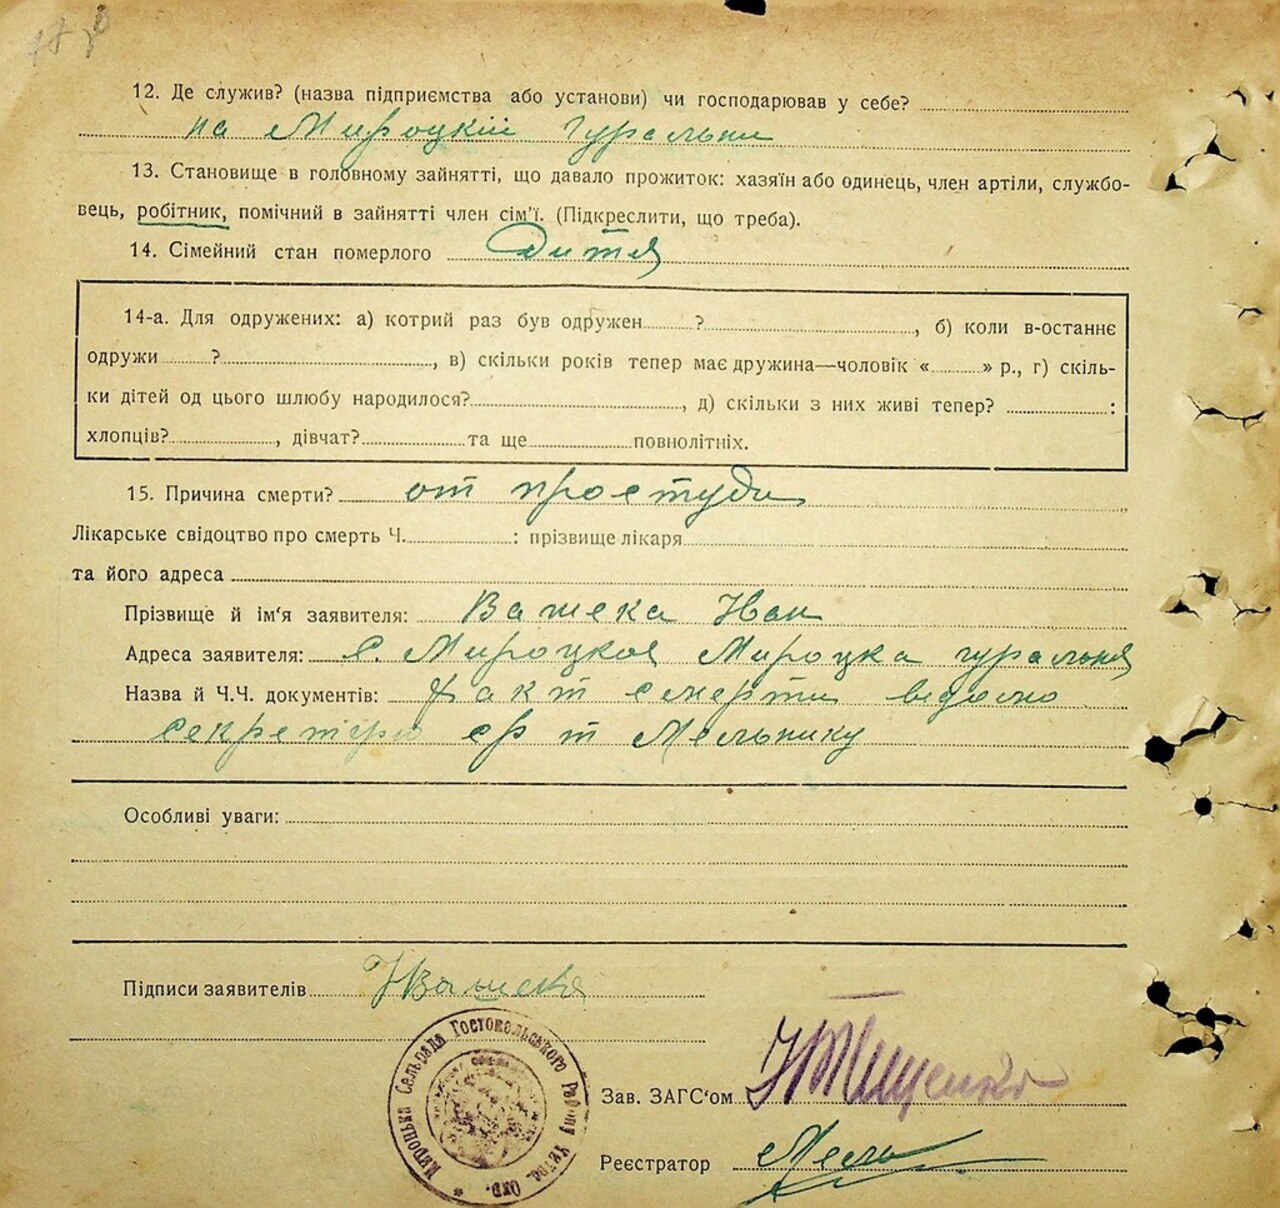 12. Де служив? (назва підприємства або установи) чи господарював у себе?
на Мироцкій гуральни
13. Становище в головному зайнятті, що давало прожиток: хазяїн або одинець, член артіли, службо-
вець, робітник, помічний в зайнятті член сім'ї. (Підкреслити, що треба).
14. Сімейний стан померлого Дитя
14-а. Для одружених: а) котрий раз був одружен ? , б) коли в-останнє
одружи ? , в) скільки років тепер має дружина—чоловік « » р., г) скіль-
ки дітей од цього шлюбу народилося? , д) скільки з них живі тепер? :
хлопців? , дівчат? та ще повнолітніх.
15. Причина смерти? от простуди
Лікарське свідоцтво про смерть Ч. : прізвище лікаря
та його адреса
Прізвище й ім'я заявителя: Важека Иван
Адреса заявителя: с. Мироцкоя Мироцка гуральня
Назва й Ч.Ч. документів: Факт смерти ведомо
секретарю с/р т Мельнику
Особливі уваги:
Підписи заявителів
Мироцька Сельрада Гостомельського Району Київ. Окр.
Зав. ЗАГС'ом ИТищенко
Реєстратор Мель